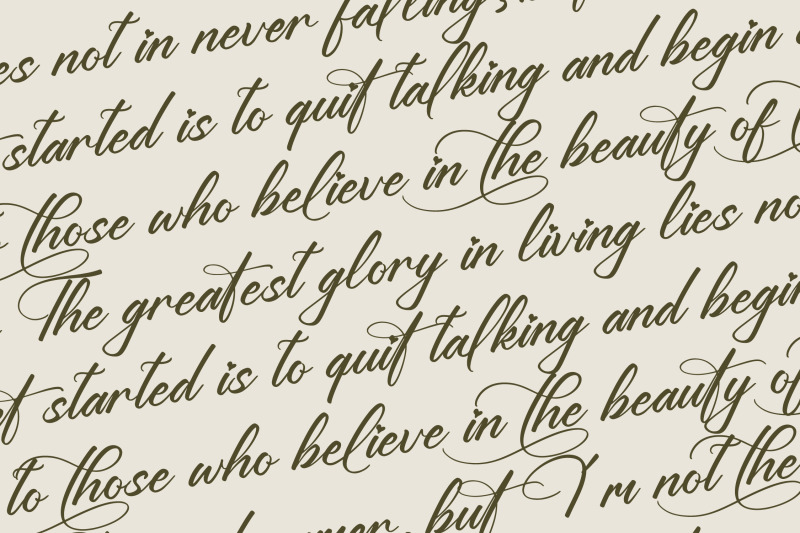 es not in never falling,
started is to quit talking and begin
those who believe in the beauty of
The greatest glory in living lies no
et started is to quit talking and begin
to those who believe in the beauty of
but I'm not the